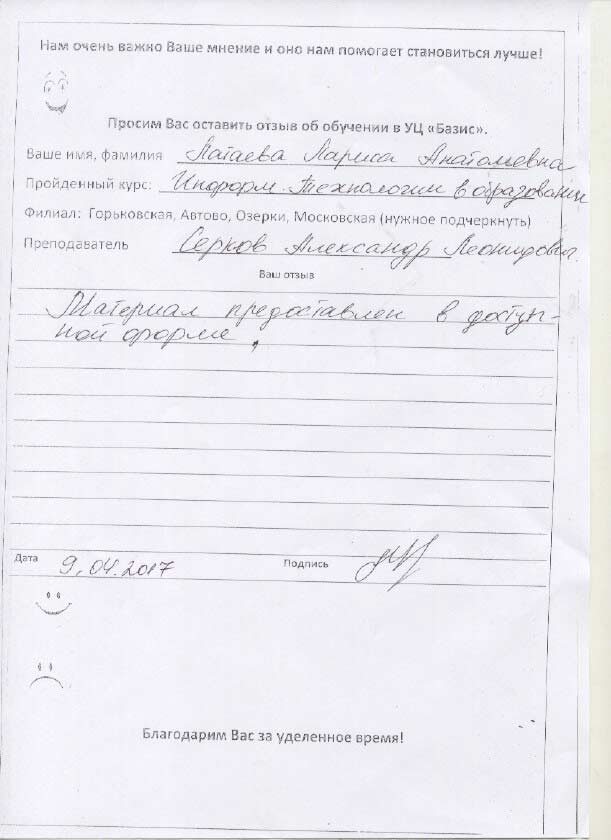 Нам очень важно Ваше мнение и оно нам помогает становиться лучше!
Просим Вас оставить отзыв об обучении в УЦ «Базис».
Ваше имя, фамилия Патаева Лариса Анатольевна
Пройденный курс: Информ. Технологии в образовании
Филиал: Горьковская, Автово, Озерки, Московская (нужное подчеркнуть)
Преподаватель Серков Александр Леонидович
Ваш отзыв
Материал предоставлен в доступ-
ной форме.
Дата 9.04.2017 Подпись
Благодарим Вас за уделенное время!